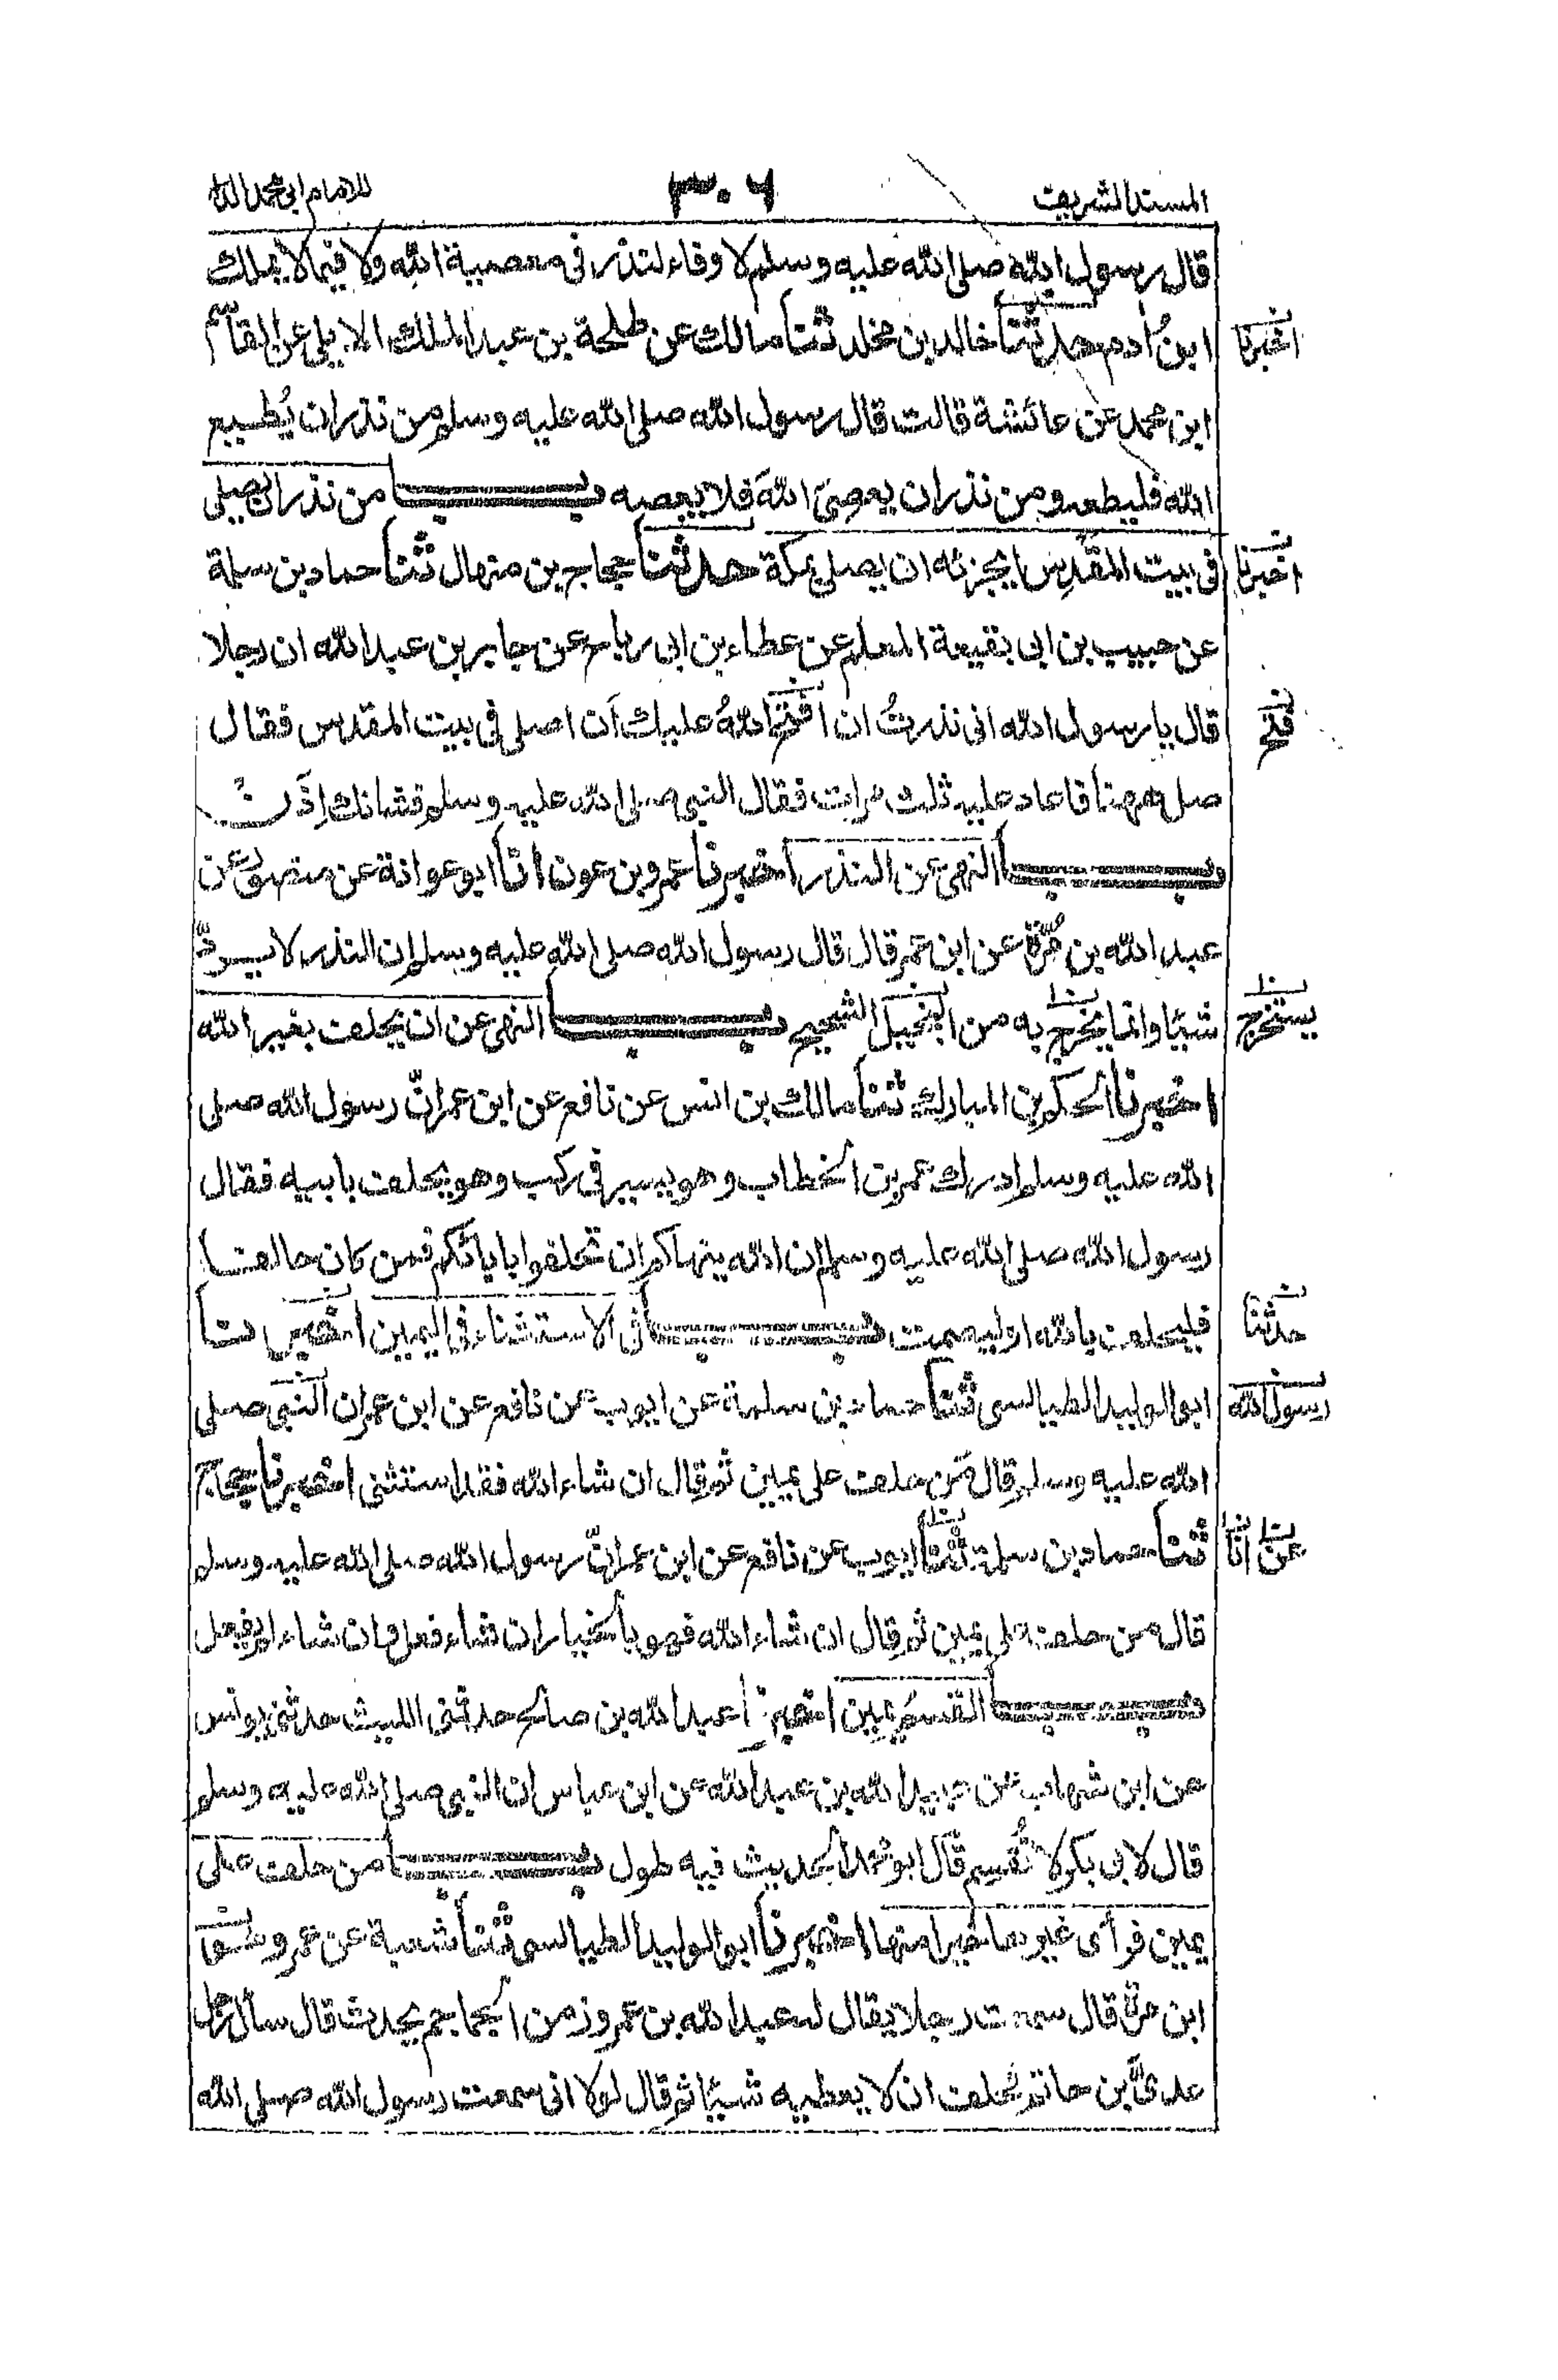 المسند الشريف
٣٠٦
للامام ابی محمد الدا
قال رسول الله صلى الله عليه وسلم لا وفاء لنذر فى معصية الله ولا فيما لا يملك
ابنُ اٰدم حدثنا خالد بن مخلد ثنا مالك عن طلحة بن عبد الملك الايلى عن القاسم
اخبرنا
ابن محمد عن عائشة قالت قال رسول الله صلى الله عليه وسلم من نذر ان يُطيع
الله فليطعه ومن نذر ان يعصىَ اللهَ فلا يعصه باب من نذر ان يصلى
فى بيت المقدِس ايجزئه ان يصلى بمكة حدثنا حجاج بن منهال ثنا حماد بن سلمة
اخبرنا
عن حبيب بن ابى بقيعة المعلم عن عطاء بن ابى رباح عن جابر بن عبد الله ان رجلا
قال يا رسول الله انى نذرتُ ان افتح اللهُ عليك اَن اصلى فى بيت المقدس فقال
فتح
صل ههنا فاعاد عليه ثلث مرات فقال النبى صلى الله عليه وسلم فشانك اِذَن
باب النهى عن النذر اخبرنا عمرو بن عون انا ابو عوانة عن منصور عن
عبد الله بن مُرّة عن ابن عمر قال قال رسول الله صلى الله عليه وسلم ان النذر لا يردّ
شيئا وانما يخرج به من البخيل الشحيح باب النهى عن ان يحلف بغير الله
يستخرج
اخبرنا الحكم بن المبارك ثنا مالك بن انس عن نافع عن ابن عمر انّ رسول الله صلى
الله عليه وسلم ادرك عمر بن الخطاب وهو يسير فى ركب وهو يحلف بابيه فقال
رسول الله صلى الله عليه وسلم ان الله ينهاكم ان تحلفوا بابائكم فمن كان حالفا
فليحلف بالله او ليصمت باب فى الاستثناء فى اليمين اخبرنا
حدثنا
ابو الوليد الطيالسى ثنا حماد بن سلمة عن ايوب عن نافع عن ابن عمر ان النبى صلى
رسول الله
الله عليه وسلم قال مَن حلف على يمين ثم قال ان شاء الله فقد استثنى اخبرنا حجاج
ثنا حماد بن سلمة ثنا ايوب عن نافع عن ابن عمر انّ رسول الله صلى الله عليه وسلم
عن انا
قال من حلف على يمين ثم قال ان شاء الله فهو بالخيار ان شاء فعل وان شاء لم يفعل
باب القسمُ يمين اخبرنا عبد الله بن صالح حدثنى الليث حدثنى يونس
عن ابن شهاب عن عبيد الله بن عبد الله عن ابن عباس ان النبى صلى الله عليه وسلم
قال لابى بكر لا تُقسم قال ابو محمد الحديث فيه طول باب من حلف على
يمين فرأى غيرها خيرا منها اخبرنا ابو الوليد الطيالسى ثنا شعبة عن عمرو هو
ابن مرة قال سمعت رجلا يقال له عبد الله بن عمرو زمن الجماجم يحدث قال سأل رجل
عدىَّ بن حاتم فحلف ان لا يعطيه شيئا ثم قال لولا انى سمعت رسول الله صلى الله